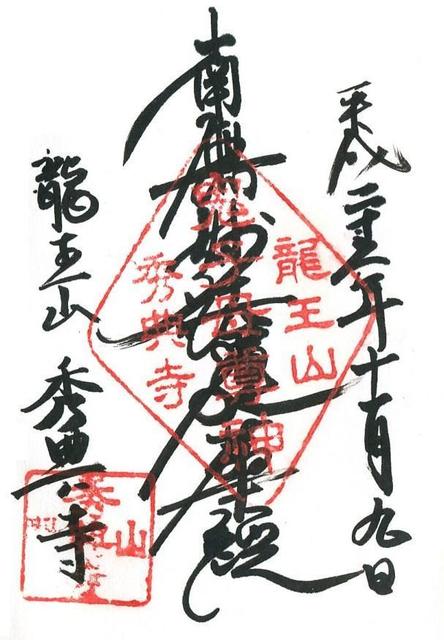 平成二十五年十一月九日
南無妙法蓮華經
龍王山 秀典寺
龍王山
鬼子母尊神
秀典寺